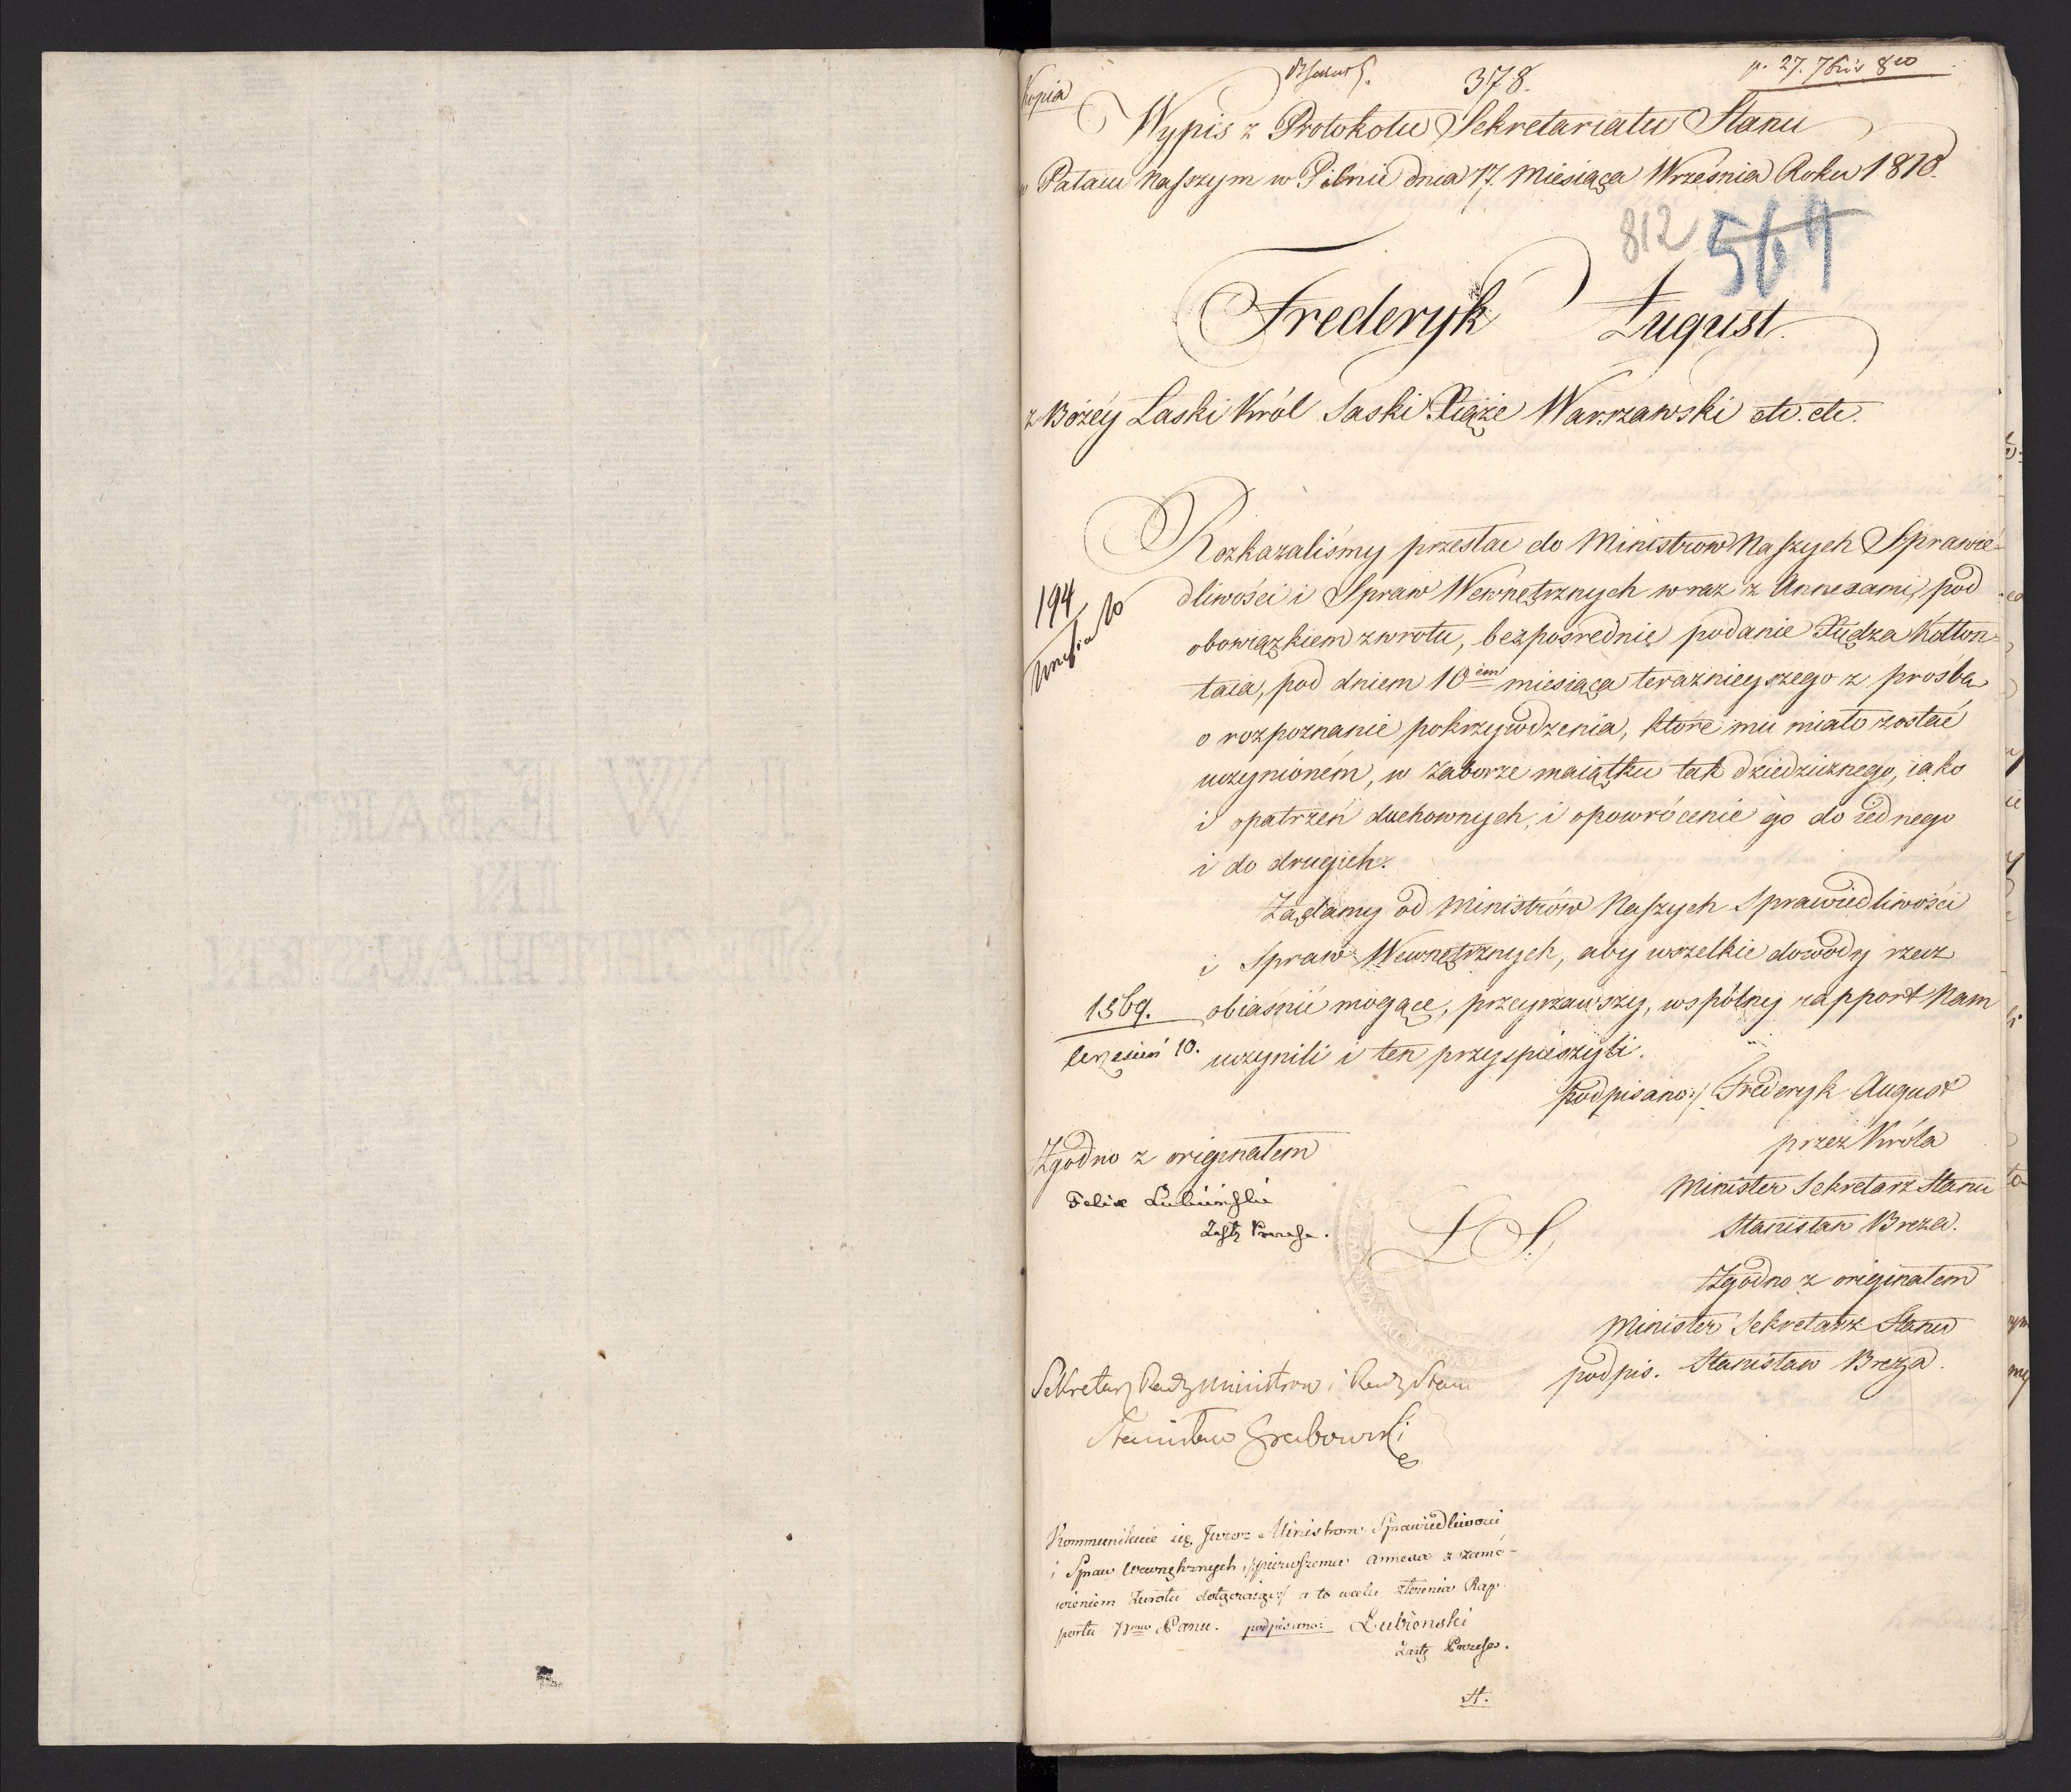 Kopia
378.
p. 27. 7bris 810
Wypis z Protokołu Sekretariatu Stanu
w Pałacu Naszym w Pilnie dnia 17. Miesiąca Września Roku 1810.
812 564
Frederyk August
z Bożéy Łaski Król Saski Xiąże Warszawski etc. etc.
Rozkazaliśmy przesłać do Ministrów Naszych Sprawie-
194
dliwości i Spraw Wewnętrznych wraz z Annexami, pod
obowiązkiem zwrotu, bezpośrednie podanie Xiędza Kołłon-
taia, pod dniem 10em miesiąca teraznieyszego z prośbą
o rozpoznanie pokrzywdzenia, które mu miało zostać
uczynioném, w zaborze maiątku tak dziedzicznego, iako
i opatrzeń duchownych, i o powrócenie go do iednego
i do drugich.
Żądamy od Ministrów Naszych Sprawiedliwości
i Spraw Wewnętrznych, aby wszelkie dowody rzecz
1369. obiaśnić mogące, przeyrzawszy, wspólny rapport Nam
wrzesień 10. uczynili i ten przyspieszyli.
podpisano:/ Frederyk August
przez Króla
Minister Sekretarz Stanu
Stanisław Breza.
Zgodno z originałem
Felix Łubieński
Zastę. Prezesa.
L. S.
Zgodno z originałem
Minister Sekretarz Stanu
podpis. Stanisław Breza.
Sekretarz Rady Ministrow i Rady Stanu
Stanisław Grabowski
Kommunikuie się JWozz Ministrom Sprawiedliwości
i Spraw Wewnętrznych, /:pierwszemu annexa z zamó-
wieniem zwrotu dołączaiąc:/ a to w celu złożenia Rap-
portu Nmu Panu. podpisano: Łubienski
Zastę. Prezesa.